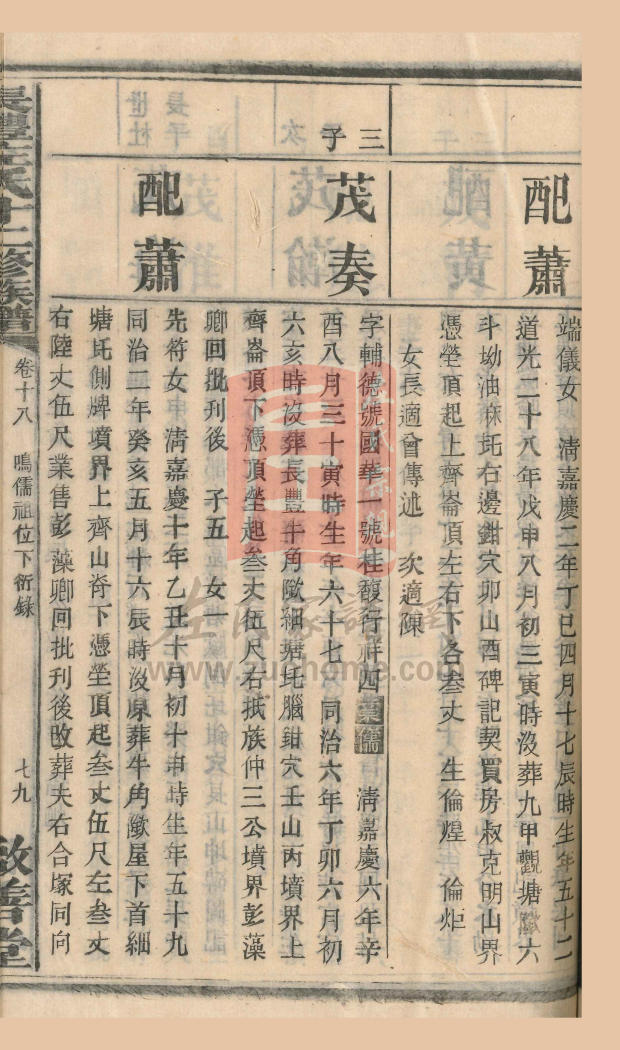 配蕭
端儀女 淸嘉慶二年丁巳四月十七辰時生年五十二
道光二十八年戊申八月初三寅時沒葬九甲觀塘 六
斗坳油麻 右邊鉗穴卯山酉碑記契買房叔克明山界
憑塋頂起上齊崙頂左右下各叁丈 生倫煌 倫炬
女長適曾傳述 次適陳
三子
茂奏
字輔德號國華一號桂馥行祥四業儒 淸嘉慶六年辛
酉八月三十寅時生年六十七 同治六年丁卯六月初
六亥時沒葬長豐牛角 細塘 腦鉗穴壬山丙墳界上
齊崙頂下憑頂塋起叁丈伍尺右抵族仲三公墳界彭藻
卿回批刊後 子五 女一
配蕭
先符女 淸嘉慶十年乙丑十月初十申時生年五十九
同治二年癸亥五月十六辰時沒原葬牛角 屋下首細
塘 側牌墳界上齊山脊下憑塋頂起叁丈伍尺左叁丈
右陸丈伍尺業售彭藻卿回批刊後改葬夫右合塚同向
長豐 氏十二修族譜
卷十八 鳴儒祖位下衍錄
七九
敬善堂
www.zuohome.com